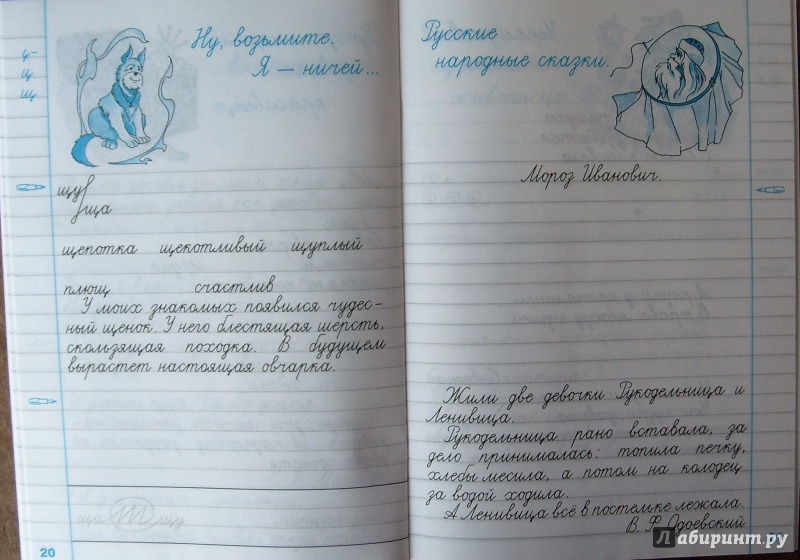 Ну, возьмите.
Я — ничей...
ц
щ
щ
щу
ща
щепотка щекотливый щуплый
плющ счастлив
У моих знакомых появился чудес-
ный щенок. У него блестящая шерсть,
скользящая походка. В будущем
вырастет настоящая овчарка.
ща щу
20
Русские
народные сказки.
Мороз Иванович.
Жили две девочки Рукодельница и
Ленивица.
Рукодельница рано вставала, за
дело принималась: топила печку,
хлебы месила, а потом на колодец
за водой ходила.
А Ленивица всё в постельке лежала.
В. Ф. Одоевский
Лабиринт.ру